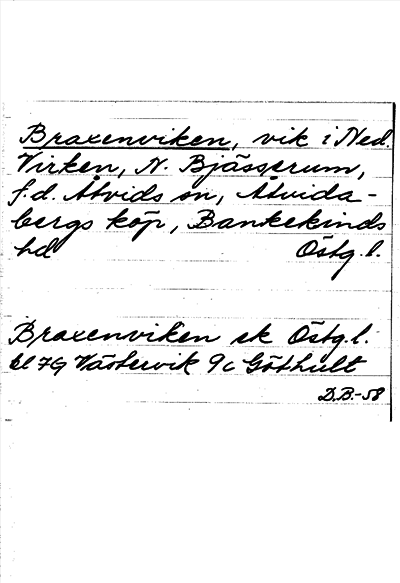 Braxenviken, vik i Ned.
Virken, N. Bjässerum,
f.d. Åtvids sn, Åtvida-
bergs köp, Bankekinds
hd Östg.l.
Braxenviken ek Östg.l.
bl 7G Västervik 9c Göthult
D.B.-58